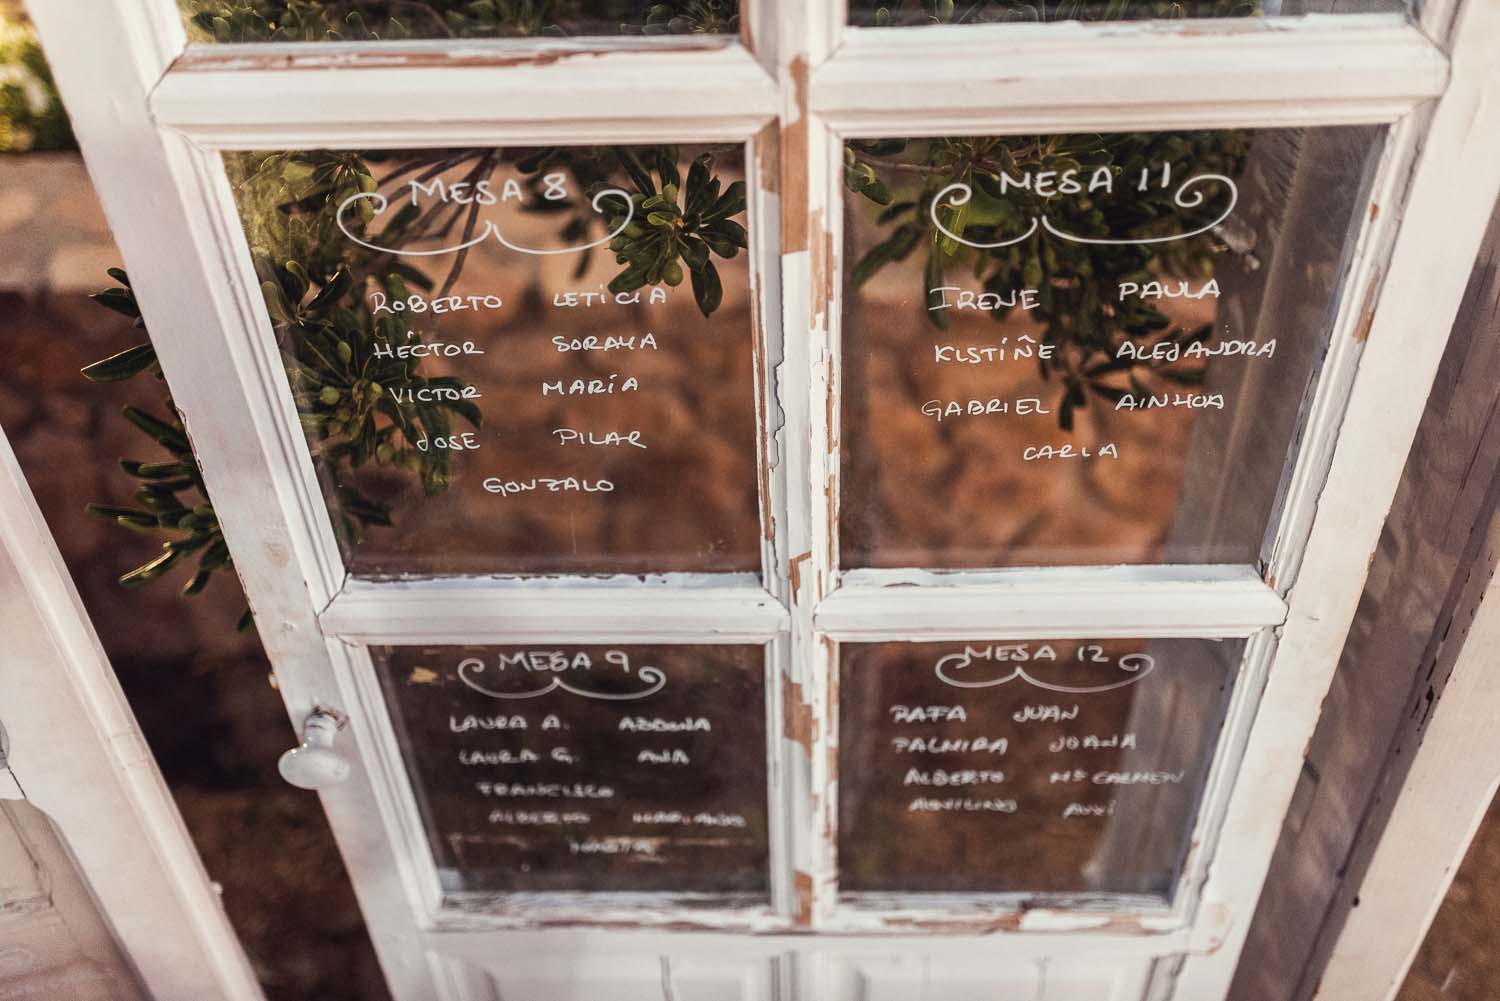 MESA 8
ROBERTO LETICIA
HÉCTOR SORAYA
VICTOR MARÍA
JOSE PILAR
GONZALO
MESA 9
LAURA A.
LAURA G. ANA
FRANCISCO
ALBERTO MARIANO
MESA 11
IRENE PAULA
KISTIÑE ALEJANDRA
GABRIEL AINHOA
CARLA
MESA 12
RAFA JUAN
PALMIRA JOANA
ALBERTO Mª CARMEN
AQUILINO AUXI